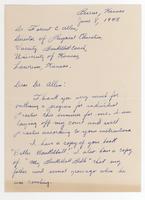 Kansas
June 8, 1948
Dr. Forrest C. Allen,
Director of Physical Education
Varsity Basketball Coach,
University of Kansas
Lawrence, Kansas.
Dear Dr. Allen:
Thank you very much for
outlining a program for individual
practice this summer for me. I am
laying off my court and will
practice according to your instructions
I have a copy of your book
"Better Basketball". I also have a copy
of "My Basketball Bible" that my
father used years ago when he
was coaching.